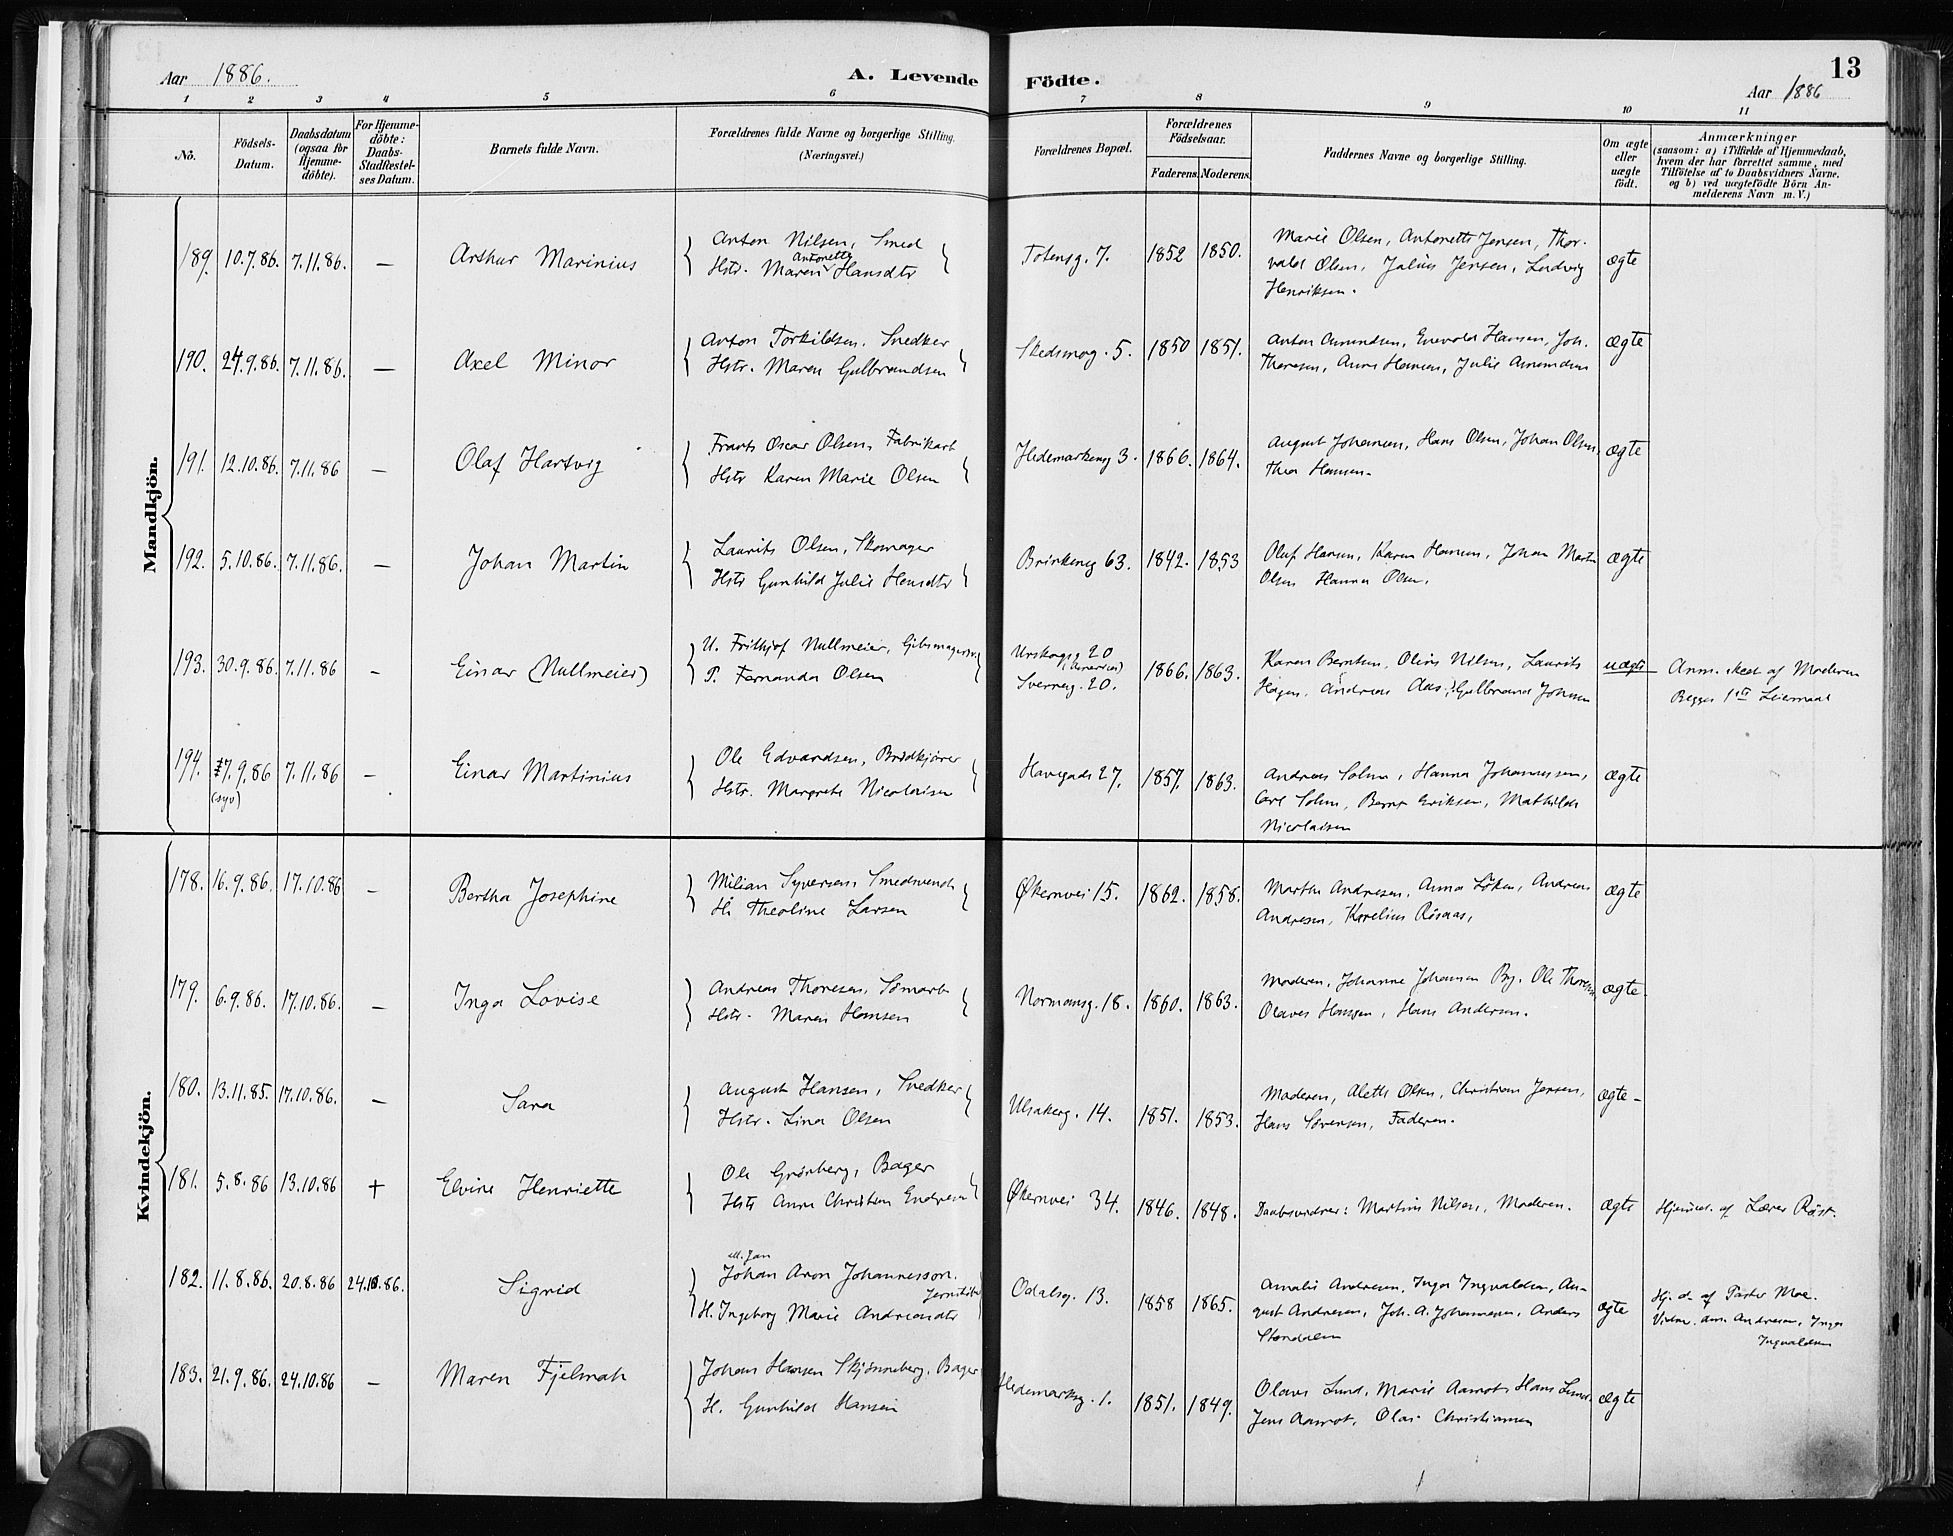 Aar 1886.
A. Levende Födte.
13
Aar 1886
1 2 3 4 5 6 7 8 9 10 11
No.
Födsels-Datum.
Daabsdatum (ogsaa for Hjemme-döbte).
For Hjemme-döbte: Daabs-Stadfæstel-ses Datum.
Barnets fulde Navn.
Forældrenes fulde Navne og borgerlige Stilling.
(Næringsvei.)
Forældrenes Bopæl.
Forældrenes Födselsaar.
Faderens. Moderens.
Faddernes Navne og borgerlige Stilling.
Om ægte eller uægte födt.
Anmærkninger
(saasom: a) i Tilfælde af Hjemmedaab,
hvem der har forrettet samme, med
Tilföielse af to Daabsvidners Navne.
og b) ved uægtefödte Börn An-
melderens Navn m. V.)
Mandkjön.
189. 10.7.86. 7.11.86. — Arthur Marinius
Anton Nilsen, Smed
Hstr. Maren Antonette Hansdtr
Totensg. 7. 1852 1850.
Marie Olsen, Antonette Jensen, Thor-
vald Olsen, Julius Jensen, Ludvig
Henriksen.
ægte
190. 24.9.86. 7.11.86. — Axel Minor
Anton Torkildsen, Snedker
Hstr. Maren Gulbrandsen
Skedsmog. 5. 1850 1851.
Anton Amundsen, Enevald Hansen, Joh.
Thoresen, Anne Hansen, Julie Amundsen
ægte
191. 12.10.86. 7.11.86 — Olaf Hartvig
Frants Oscar Olsen, Fabrikarb
Hstr Karen Marie Olsen
Hedemarkeng 3. 1866. 1864.
August Johansen, Hans Olsen, Johan Olsen,
Thea Hansen.
ægte
192. 5.10.86. 7.11.86. — Johan Martin
Laurits Olsen, Skomager
Hstr Gunhild Julie Hansdtr
Brinkeng 63. 1842. 1853
Oluf Hansen, Karen Hansen, Johan Martin
Olsen Hanna Olsen.
ægte
193. 30.9.86. 7.11.86 - Einar (Nullmeier)
U. Frithjof Nullmeier, Gibsmagersv.
P. Fernanda Olsen
Urskogg 20
Sverreg. 20.
1866. 1863.
Karen Berntsen, Oline Nilsen, Laurits
Hagen, Andreas Aas, Gulbrand Johnsen
uægte
Anm. skeet af Moderen
Begges 1ste Leiermaal
194. 17.9.86 (syv) 7.11.86 — Einar Martinius
Ole Edvardsen, Brødkjører
Hstr. Margrete Nicolaisen
Havegade 27. 1857. 1863.
Andreas Solum, Hanna Johannessen,
Carl Solum, Bernt Eriksen, Mathilde
Nicolaisen
ægte
Kvindekjön.
178. 16.9.86. 17.10.86 — Bertha Josephine
Milian Syversen, Smedsvend
H. Theoline Larsen
Økernvei 15. 1862. 1858.
Marthe Andresen, Anna Løken, Andreas
Andresen, Karelius Røsaas,
ægte
179. 6.9.86. 17.10.86. — Inga Lovise
Andreas Thoresen, Sømarb
Hstr. Maren Hansen
Normannsg. 18. 1860. 1863.
Moderen, Johanne Johansen Bry. Ole Thoresen
Olaves Hansen, Hans Andersen.
ægte
180. 13.11.85. 17.10.86. — Sara
August Hansen, Snedker
Hstr. Lina Olsen
Ulsakerg. 14. 1851. 1853.
Moderen, Alette Olsen, Christian Jensen,
Hans Sørensen, Faderen.
ægte -
181. 5.8.86 13.10.86 + Elvine Henriette
Ole Grønberg, Bager
Hstr Anne Christine Endresen
Økernvei 34. 1846. 1848.
Daabsvidner: Martins Nilsen, Moderen.
ægte
Hjemmed. af Lærer Røst.
182. 11.8.86. 20.8.86 24.10.86. Sigrid
ell. Jan
Johan Aron Johannesson.
H. Ingeborg Marie Andreasdtr
Odalsg. 13. 1858 1865.
Amalie Andresen, Inga Ingvaldsen, Au-
gust Andresen, Joh. A. Johannesen, Anders
ægte
Hj. d. af Pastor Moe.
Vidne. Am. Andresen, Inga
Ingvaldsen
183. 21.9.86. 24.10.86 — Maren Fjelmah
Johan Hansen Skjønneberg, Bager
H. Gunhild Hansen
Hedemarksg. 1. 1851. 1849.
Olava Lund, Marie Aamot, Hans Lund,
Jens Aamot, Olai Christiansen
ægte